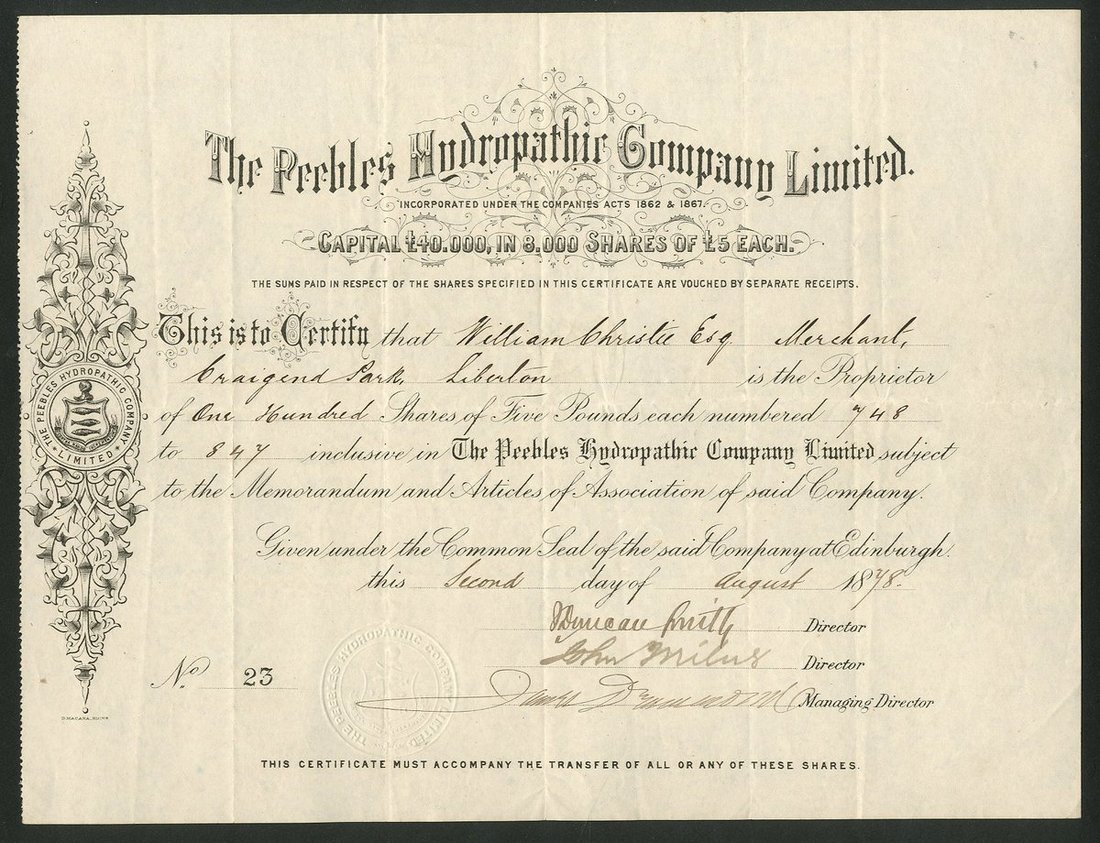 The Peebles Hydropathic Company Limited.
INCORPORATED UNDER THE COMPANIES ACTS 1862 & 1867.
CAPITAL £40.000, IN 8.000 SHARES OF £5 EACH.
THE SUMS PAID IN RESPECT OF THE SHARES SPECIFIED IN THIS CERTIFICATE ARE VOUCHED BY SEPARATE RECEIPTS.
This is to Certify that William Christie Esq Merchant,
Craigend Park, Liberton is the Proprietor
of One Hundred Shares of Five Pounds each numbered 748
to 847 inclusive in The Peebles Hydropathic Company Limited subject
to the Memorandum and Articles of Association of said Company.
Given under the Common Seal of the said Company at Edinburgh.
this Second day of August 1878.
Duncan Smith Director
John Milne Director
James Managing Director
No. 23
THIS CERTIFICATE MUST ACCOMPANY THE TRANSFER OF ALL OR ANY OF THESE SHARES.
THE PEEBLES HYDROPATHIC COMPANY LIMITED
THE PEEBLES HYDROPATHIC COMPANY LIMITED